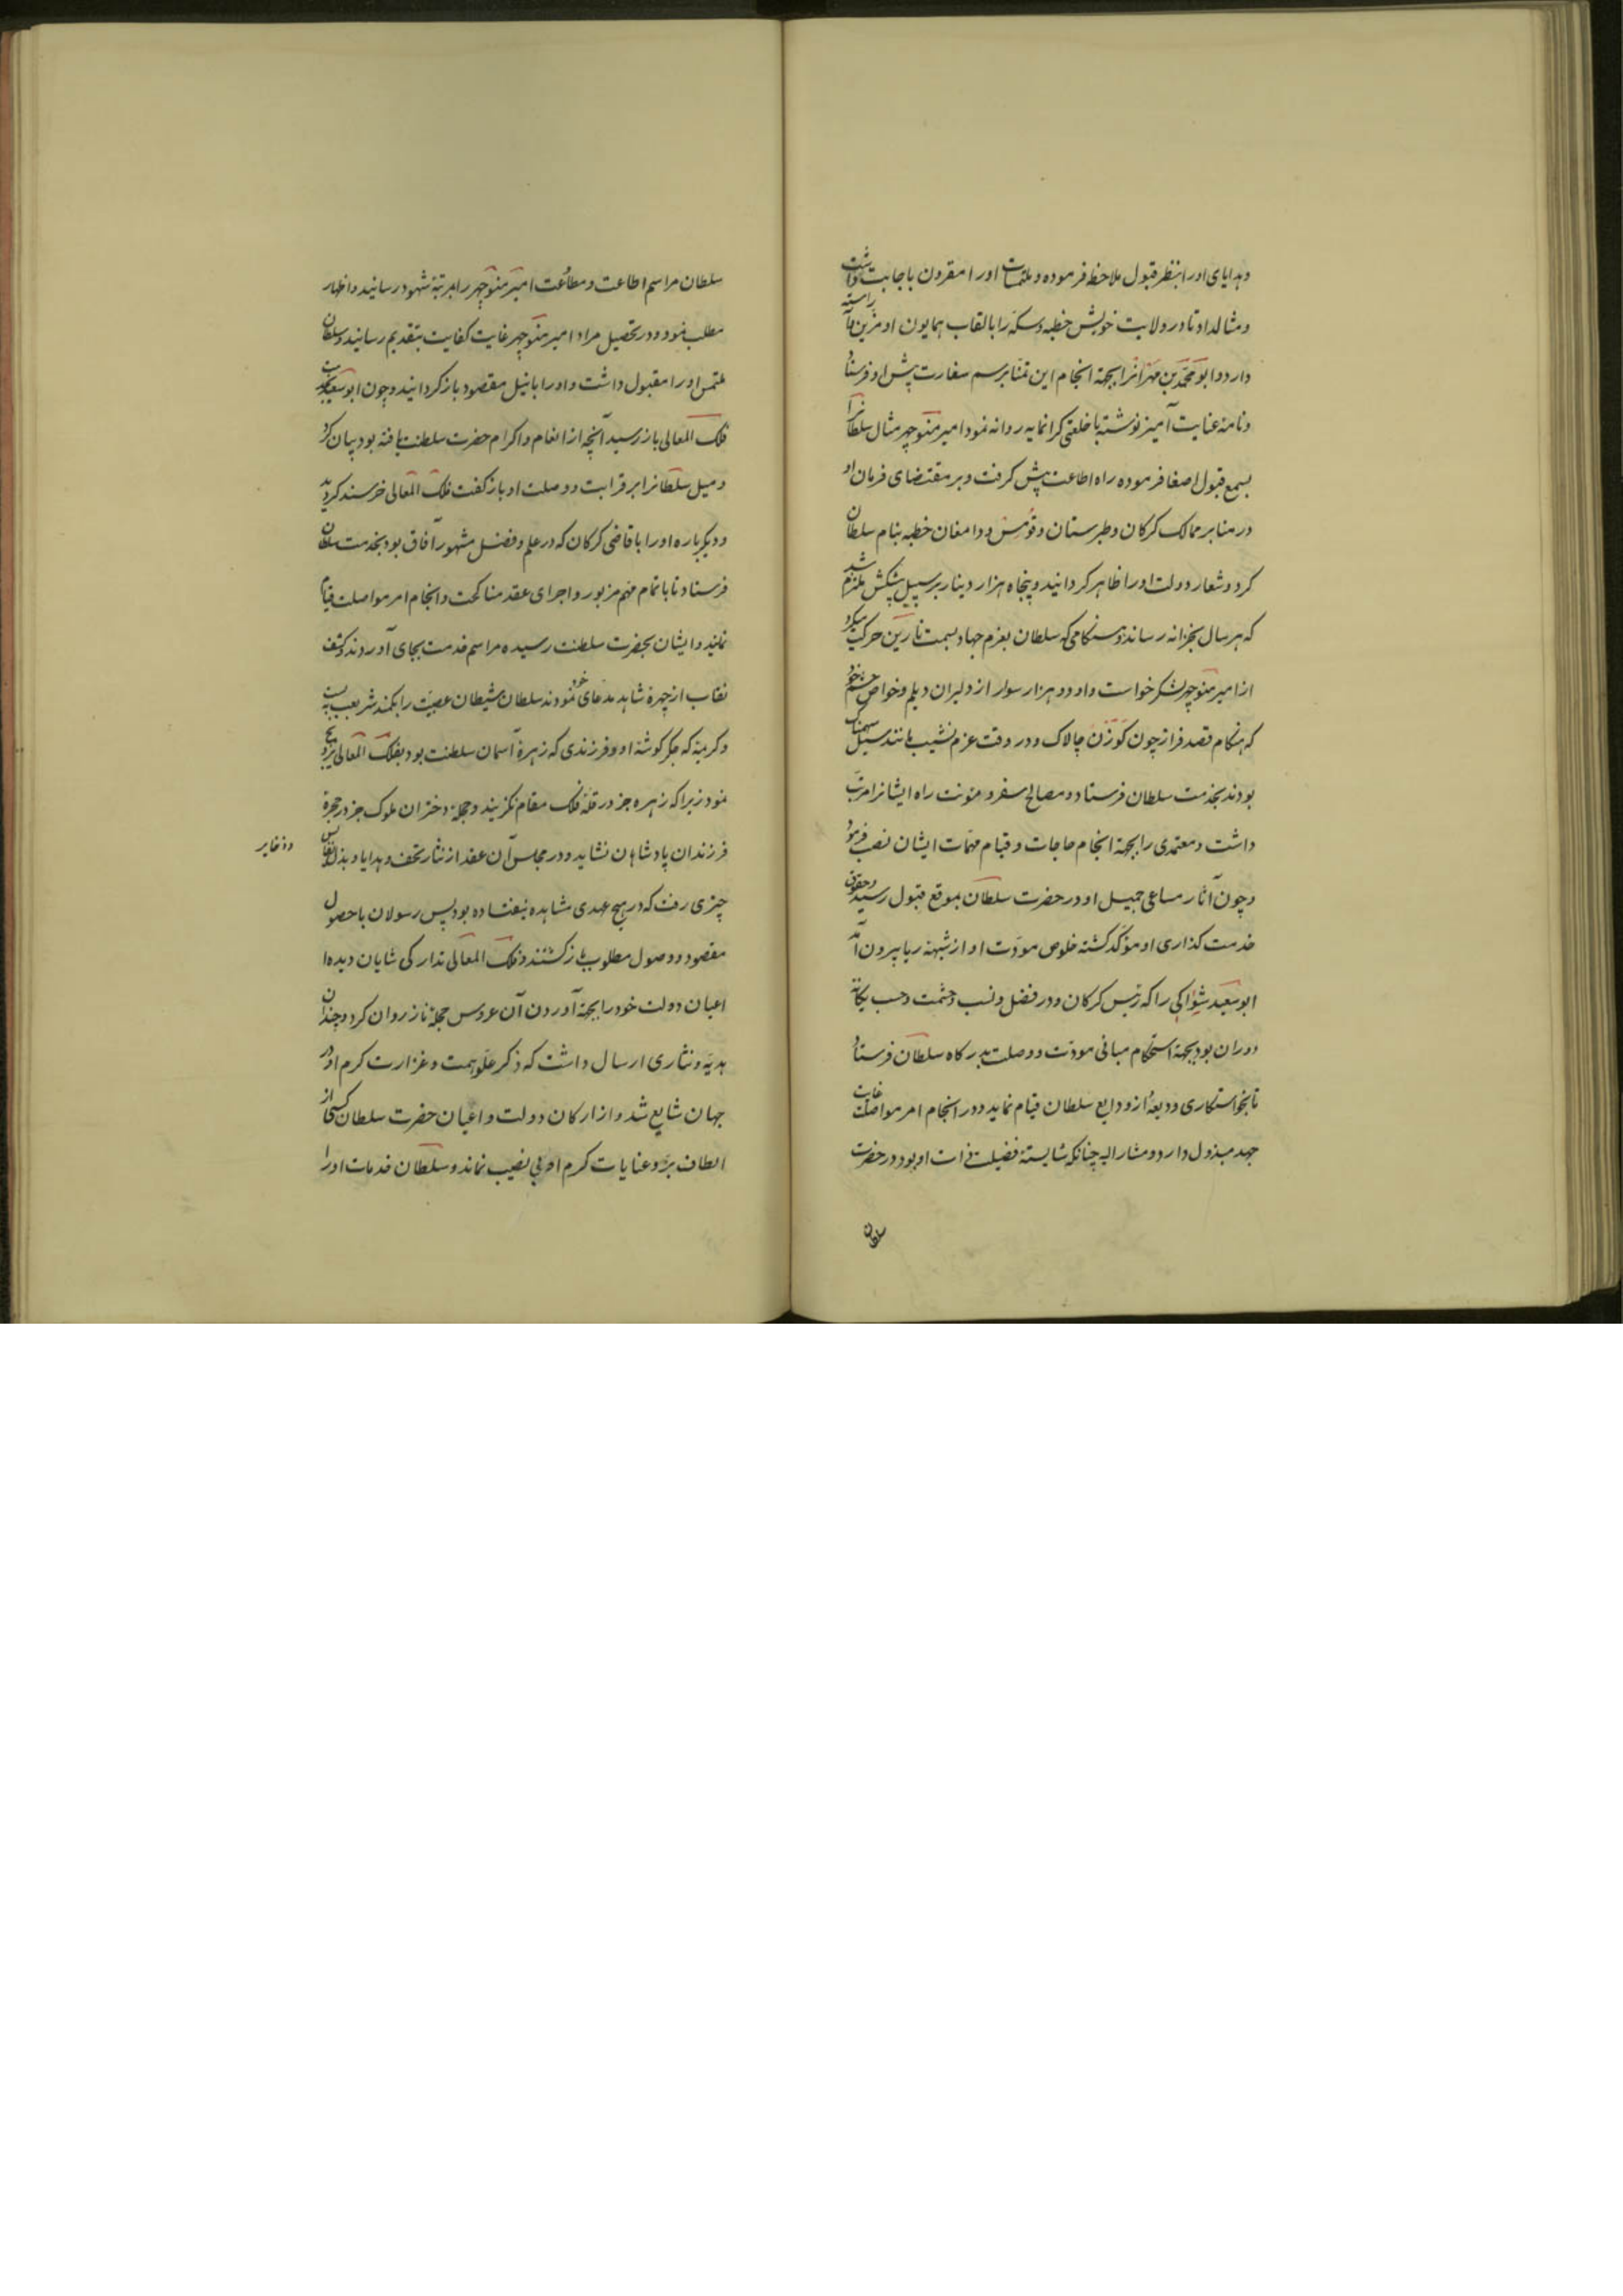 وهدایای اورا بنظر قبول ملاحظه فرموده و ملتمسات اورا مقرون باجابت داشت
ومثالداد تا در ولایت خویش خطبه وسکه را بالقاب همایون او مزین وآراسته
دارد وابومحمد بن مهرانرا بجهة انجام این تمنا برسم سفارت پیش او فرستاد
ونامهٔ عنایت آمیز نوشته با خلعتی کرانمایه روانه نمود امیر منوچهر مثال سلطانرا
بسمع قبول اصغا فرموده راه اطاعت پیش کرفت وبر مقتضای فرمان او
در منابر ممالک کرکان وطبرستان وقومس ودامغان خطبه بنام سلطان
کرد وشعار دولت اورا ظاهر کردانید وپنجاه هزار دینار برسبیل پیشکش ملتزم شد
که هر سال بخزانه رساند وهنکامی که سلطان بعزم جهاد بسمت نارین حرکت میکرد
از امیر منوچهر لشکر خواست واو دو هزار سوار از دلیران دیلم وخواص حشم خود
که هنکام قصد فراز چون کوزن چالاک ودر وقت عزم نشیب مانند سیل سهمناک
بودند بخدمت سلطان فرستاد ومصالح سفر ومؤنت راه ایشانرا مرتب
داشت ومعتمدی را بجهة انجام حاجات وقیام مهمات ایشان نصب فرمود
وچون آثار مساعی جمیل او در حضرت سلطان بموقع قبول رسید وحقوق
خدمت کذاری او مؤکد کشته خلوص مودت او از شبهه ریا بیرون آمد
ابو سعید شواکی را که رئیس کرکان ودر فضل ونسب وحشمت وحسب یکانه
دوران بود بجهة استحکام مبانی مودت ووصلت بدرکاه سلطان فرستاد
تا بخواستکاری ودیعهٔ از ودایع سلطان قیام نماید ودر انجام امر مواصلت غایت
جهد مبذول دارد ومشار الیه چنانکه شایسته فضیلت ذات او بود در حضرت
سلطان
سلطان مراسم اطاعت ومطاوعت امیر منوچهر را بمرتبهٔ شهود رسانید واظهار
مطلب نمود ودر تحصیل مراد امیر منوچهر غایت کفایت بتقدیم رسانید وسلطان
ملتمس اورا مقبول داشت واورا بانیل مقصود باز کردانید وچون ابوسعید بخدمت
فلک المعالی باز رسید آنچه از انعام واکرام حضرت سلطنت یافته بود بیان کرد
ومیل سلطانرا بر قرابت ووصلت او باز کفت فلک المعالی خرسند کردید
ودیکر باره اورا با قاضی کرکان که در علم وفضل مشهور آفاق بود بخدمت سلطان
فرستاد تا باتمام مهم مزبور واجرای عقد مناکحت وانجام امر مواصلت قیام
نمایند وایشان بحضرت سلطنت رسیده مراسم خدمت بجای آوردند وکشف
نقاب از چهرهٔ شاهد مدعای خود نمودند سلطان شیطان عصبیت را بکمند شریعت بسته
وکریمهٔ که جکر کوشهٔ او وفرزندی که زهرهٔ آسمان سلطنت بود بفلک المعالی تزویج
نمود زیرا که زهره جز در قلهٔ فلک مقام نکزیند وحجلهٔ دختران ملوک جز در حجرهٔ
فرزندان پادشاهان نشاید ودر مجلس آن عقد از نثار تحف وهدایا وبذل نفایس
وذخایر
چیزی رفت که در هیچ عهدی مشاهده نیفتاده بود پس رسولان با حصول
مقصود ووصول مطلوب باز کشتند وفلک المعالی تدارکی شایان دیده از
اعیان دولت خود را بجهة آوردن آن عروس حجلهٔ ناز روان کرد وچندان
هدیه ونثاری ارسال داشت که ذکر علو همت وغزارت کرم او در
جهان شایع شد واز ارکان دولت واعیان حضرت سلطان کسی از
الطاف بر وعنایات کرم او بی نصیب نماند وسلطان خدمات اورا